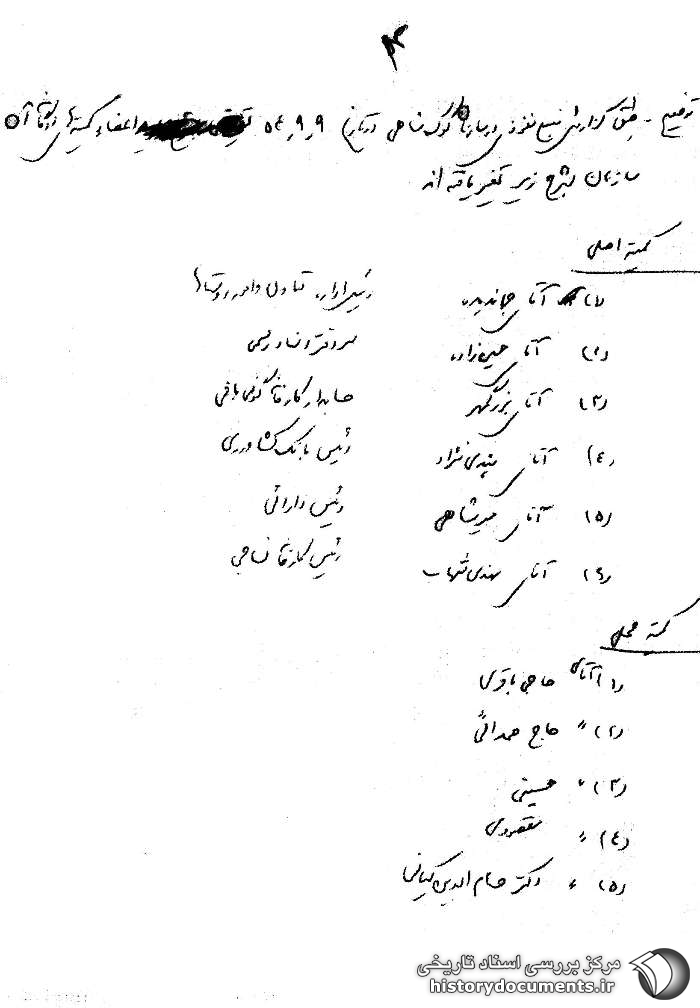 توضیح - طبق گزارش منبع نفوذی در تاریخ ۹ر۹ر۵۴ اعضاء کمیته های
سازمان بشرح زیر تغییر یافته اند
کمیته اصلی
۱) آقای جهاندیده رئیس اداره تعاون و امور روستاها
۲) آقای حسین زاده سردفتر اسناد رسمی
۳) آقای بزرگمهر حسابدار کارخانه گونی بافی
۴) آقای نژاد رئیس بانک کشاورزی
۵) آقای میرشاهی رئیس دارائی
۶) آقای مهندس شهاب رئیس کارخانه نساجی
کمیته محلی
۱) آقای حاجی باقری
۲) " حاج صمدائی
۳) " حسینی
۴) " مقصودی
۵) " دکتر حسام الدین کیانی
مرکز بررسی اسناد تاریخی
historydocuments.ir